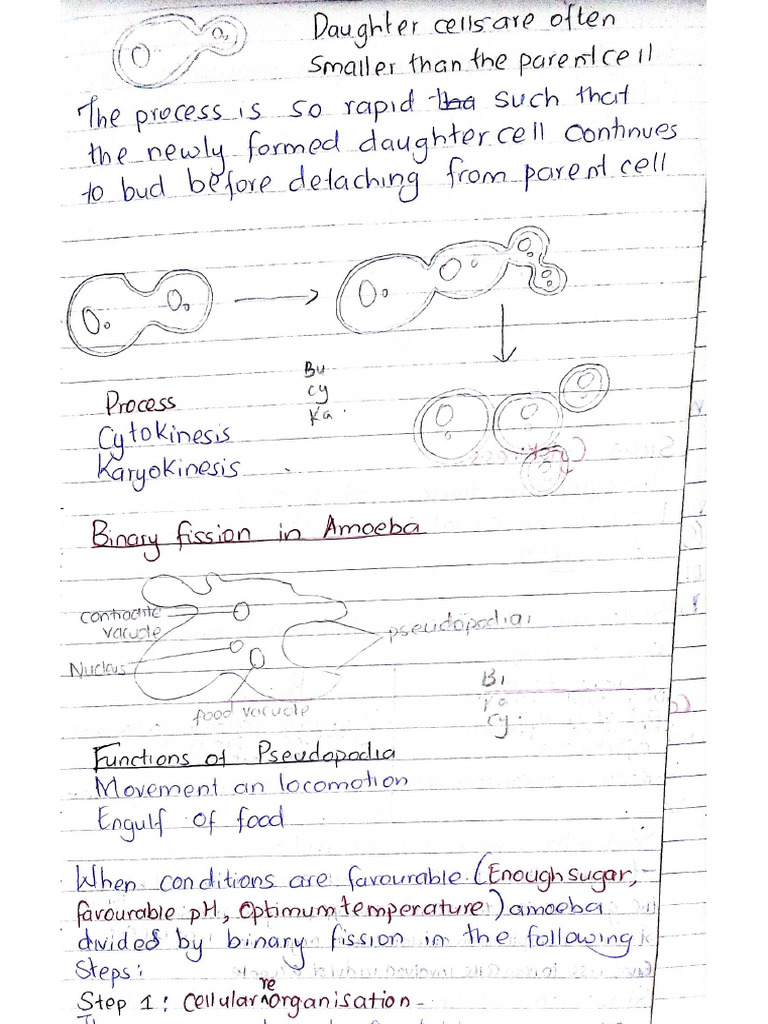 Daughter cells are often
smaller than the parent cell
The process is so rapid tha such that
the newly formed daughter cell continues
to bud before detaching from parent cell
Bu
Cy
Ka.
Process
Cytokinesis
Karyokinesis
Binary fission in Amoeba
contractile
vacuole
pseudopodia
Nucleus
food vacuole
Bi
Ka
Cy.
Functions of Pseudopodia
Movement an locomotion
Engulf of food
When conditions are favourable (Enough sugar,
favourable pH, Optimum temperature) amoeba
divided by binary fission in the following
Steps:
Step 1: Cellular reorganisation